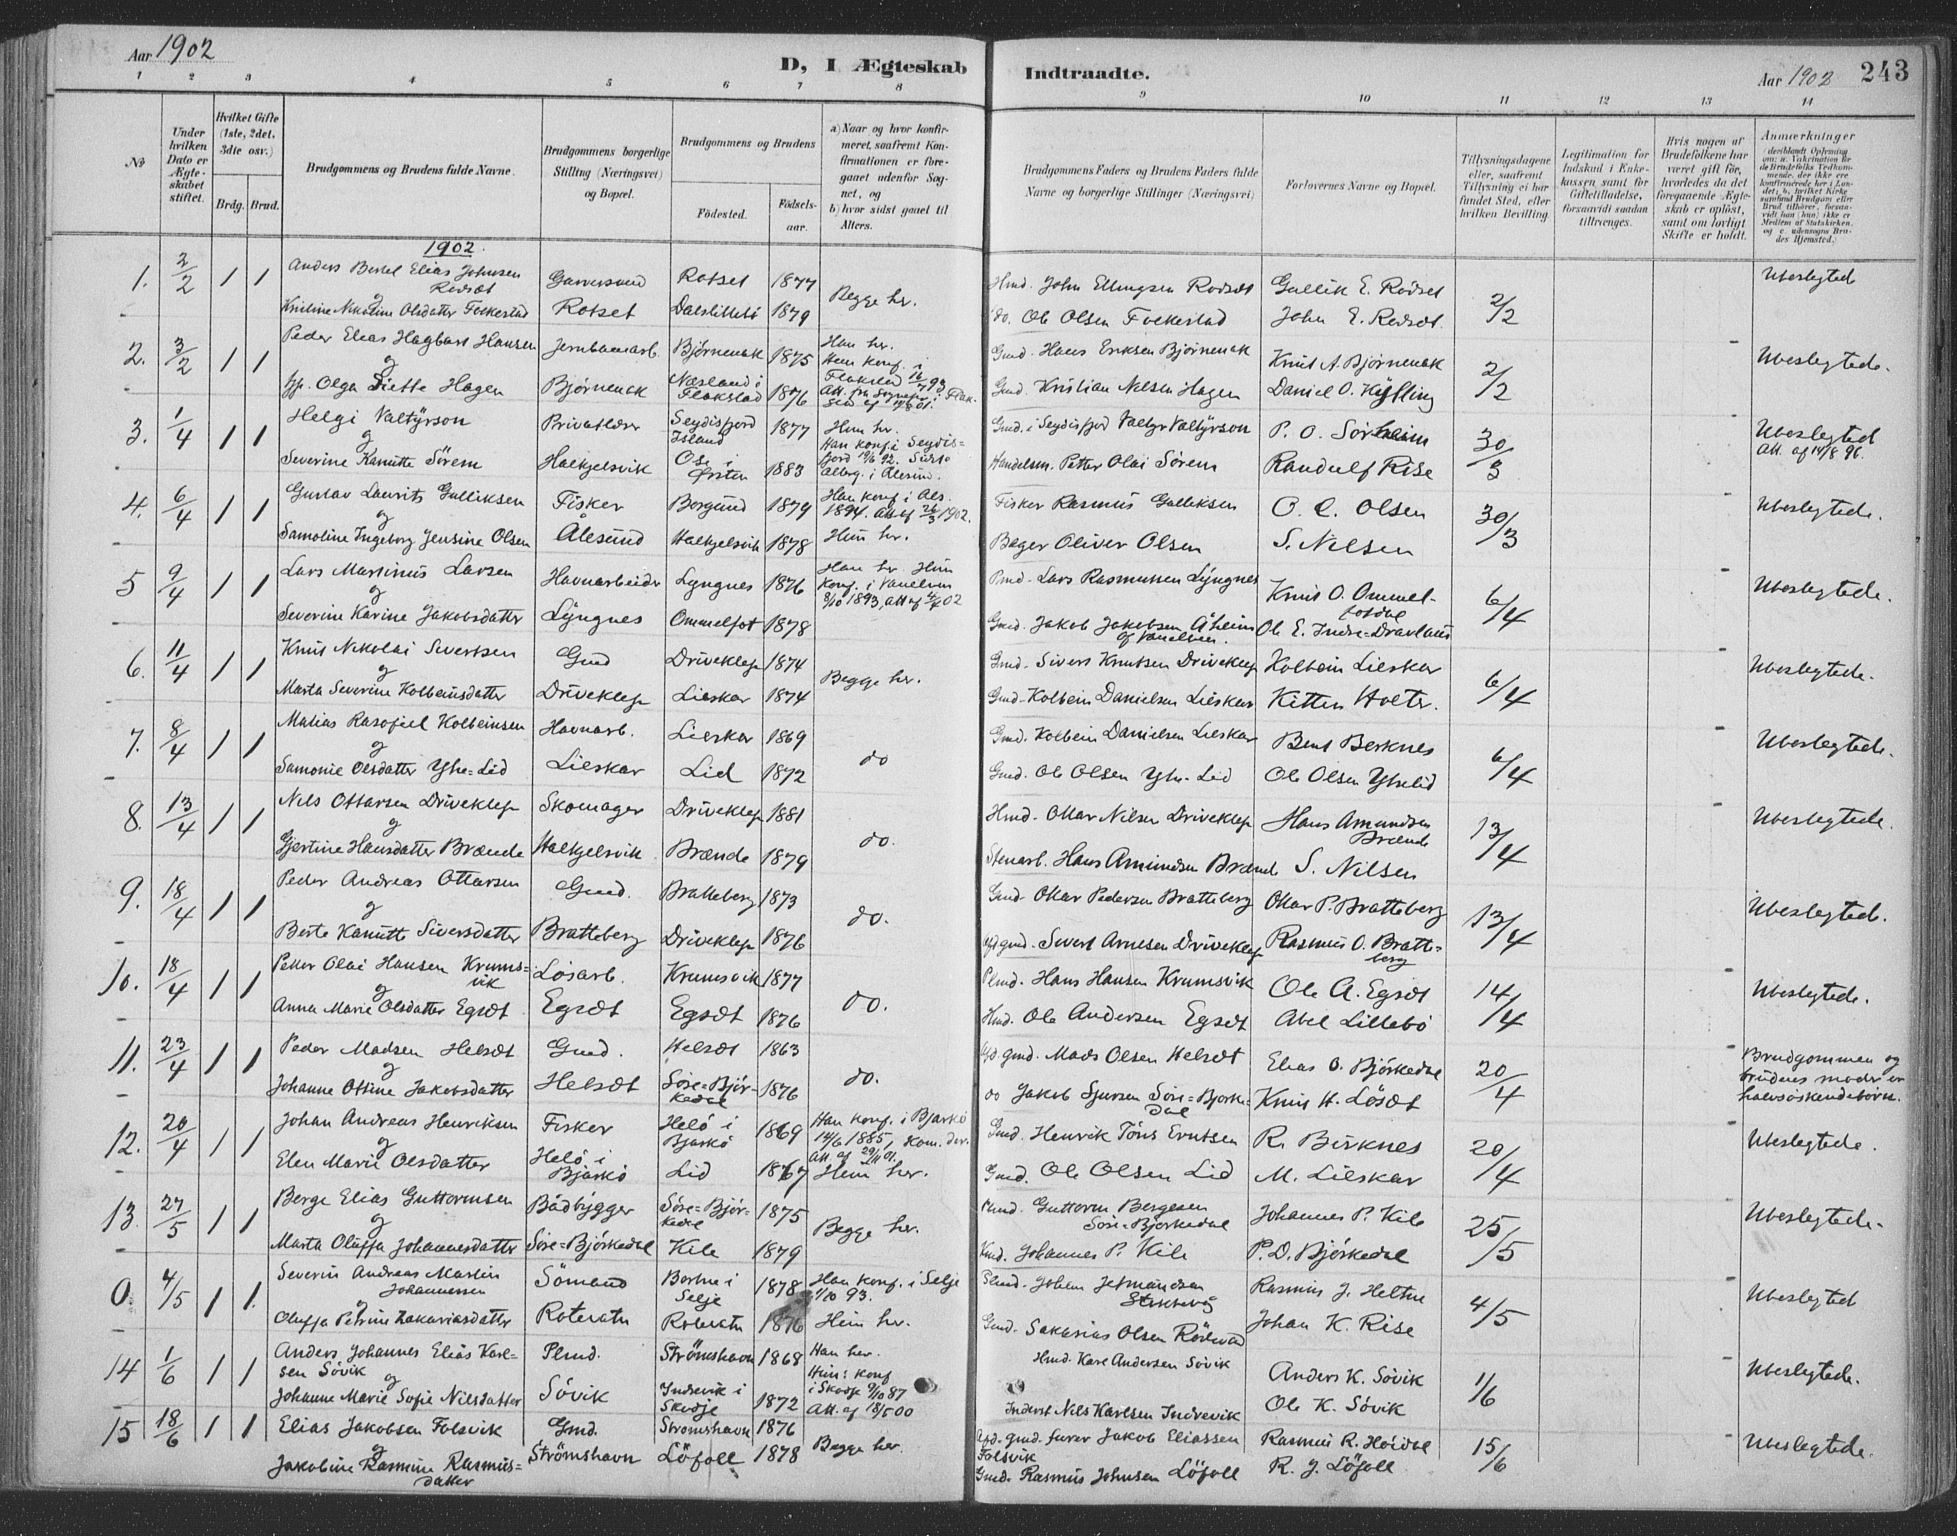 Aar 1902
D, I Ægteskab
Indtraadte.
Aar 1902
243
1 2 3 4 5 6 7 8 9 10 11 12 13 14
No
Under hvilken Dato er Ægteskabet stiftet.
Hvilket Gifte (1ste, 2det, 3die osv.)
Brdg. Brud.
Brudgommens og Brudens fulde Navne.
Brudgommens borgerlige Stilling (Næringsvei) og Bopæl.
Brudgommens og Brudens
Födested.
Födselsaar.
a) Naar og hvor konfirmeret, saafremt Konfirmationen er foregaaet udenfor Sognet, og
b) hvor sidst gaaet til Alters.
Brudgommens Faders og Brudens Faders fulde Navne og borgerlige Stillinger (Næringsvei)
Forlovernes Navne og Bopæl.
Tillysningsdagene eller, saafremt Tillysning ei har fundet Sted, efter hvilken Bevilling.
Legitimation for Indskud i Enkekassen samt for Giftetilladelse, forsaavidt saadan tiltrænges.
Hvis nogen af Brudefolkene har været gift för, hvorledes da det foregaaende Ægteskab er oplöst, samt om lovligt Skifte er holdt.
Anmærkninger
1902.
1. 2/2 1 1 Anders Bertel Elias Johnsen Rodsæt Rotset 1877 Begge her. Hmd. John Ellingsen Rodsæt Gullik E. Rodset 2/2 Ubeslegted
og Kristine Nikoline Olsdatter Folkestad Rotset 1879 do. Ole Olsen Folkestad John E. Rodsæt.
2. 3/2 1 1 Peder Elias Hagbart Hansen Jernbanearb. Bjørnenak 1875 Han her. Gmd. Hans Eriksen Bjørnenak Knut A. Bjørnenak 2/2 Ubeslegtede.
og Olga Hagen Bjørnenak 1876 Gmd. Kristian Nilsen Hagen Daniel O.
3. 1/4 1 1 Helgi Valtýrson Privatlærer Seydisfjord Island 1877 Hun her. Gmd. i Seydisfjord Valtyr Valtýrson P. O. Sørheim 30/3 Ubeslegted Att. af 14/8 96.
og Severine Kanutte Sörem Halkjelsvik Ose i Ørsten 1883 Handelsm. Petter Olai Sörem Randulf Rise
4. 6/4 1 1 Gustav Laurits Gulliksen Fisker Borgund 1879 Han konf. i Ales. 1894. Att af 26/3 1902. Fisker Rasmus Gulliksen O. C. Olsen 30/3 Ubeslegtede.
og Samoline Ingeborg Jensine Olsen Ålesund Halkjelsvik 1878 Hun her. Bager Oliver Olsen S. Nilsen
5 9/4 1 1 Lars Martinus Larsen Havnarbeider Lyngnes 1876 Han her Hun konf. i Vanelven 8/10 1893, Att af 4/4 02 Lars Rasmussen Lyngnes Knut O. Ommelfotdal 6/4 Ubeslegtede.
og Severine Karine Jakobsdatter Lyngnes Ommelfot 1878 Gmd. Jakob Jakobsen Åheim af Vanelven. Ole E. Indre-Dravlaus
6. 11/4 1 1 Knut Nikolai Sivertsen Gmd Driveklep 1874 Begge her. Gmd. Sivert Knutsen Driveklep Kolbein Lieskar 6/4 Ubeslegtede.
og Marta Severine Kolbeinsdatter Driveklep Lieskar 1874 Gmd. Kolbein Danielsen Lieskar Kitten Holter.
7. 8/4 1 1 Matias Rasofiel Kolbeinsen Havnarb. Lieskar 1869 do Gmd. Kolbein Danielsen Lieskar Bent Berknes 6/4 Ubeslegtede.
og Samonie Olsdatter Ytre-Lid Lieskar Lid 1872 Gmd. Ole Olsen Ytre-Lid Ole Olsen Ytrelid
8. 13/4 1 1 Nils Ottarsen Driveklep Skomager Driveklep 1881 do. Hmd. Ottar Nilsen Driveklep Hans Amundsen Brænde 13/4 Ubeslegtede.
og Gjertine Hansdatter Brænde Halkjelsvik Brænde 1879 Stenarb. Hans Amundsen Brænde S. Nilsen
9. 18/4 1 1 Peder Andreas Ottarsen Gmd. Bratteberg 1873 do. Gmd. Ottar Pedersen Bratteberg Ottar P. Bratteberg 13/4 Ubeslegtede.
og Berte Kanutte Siversdatter Bratteberg Driveklep 1876 Afd gmd. Sivert Arnesen Driveklep Rasmus O. Bratteberg
10. 18/4 1 1 Petter Olai Hansen Krumsvik Løsarb. Krumsvik 1877 do. Plmd. Hans Hansen Krumsvik Ole A. Egsæt 14/4 Ubeslegtede.
og Anna Marie Olsdatter Egsæt Egsæt Egsæt 1876 Hmd. Ole Andersen Egsæt Abel Lillebö
11. 23/4 1 1 Peder Madsen Helsæt Gmd. Helsæt 1863 do. Afd gmd. Mads Olsen Helsæt Elias O. Björkedal 20/4 Brudgommen og brudens moder er halvsöskendebörn.
og Johanne Ottine Jakobsdatter Helsæt Söre-Björkedal 1876 do Jakob Sjursen Söre-Bjorkedal Knut H. Lösæt
12. 20/4 1 1 Johan Andreas Henriksen Fisker Helö i Bjarkö 1869 Han konf. i Bjarkö 14/6 1885, Kom. der. Att. af 29/11 01. Gmd. Henrik Töns Evutsen R. Birknes 20/4 Ubeslegtede.
og Elen Marie Olsdatter Helö i Bjarkö Lid 1867 Hun her. Gmd. Ole Olsen Lid M. Lieskar
13. 27/5 1 1 Berge Elias Guttormsen Bådbygger Söre-Björkedal 1875 Begge her. Guttorm Bergesen Söre-Björkedal Johannes P. Kile 25/5 Ubeslegtede.
og Marta Oluffa Johannesdatter Söre-Björkedal Kile 1879 Johannes P. Kile P. D. Björkedal
0. 4/5 1 1. Severin Andreas Martin Johannessen Sömand Bortne i Selje 1878 Han konf. i Selje 1/10 93. Plmd. 4/5 Rasmus J. Ubeslegted
og Oluffa Petrine Zakariasdatter Rotevatn Rotevatn 1876 Hun her. Gmd. Sakarias Olsen Johan K. Rise
14 1/6 1 1 Anders Johannes Elias Karlsen Søvik Plmd. Strömshavn 1868 Han her. Hmd. Karl Andersen Søvik Anders K. Søvik 1/6 Ubeslegtede.
og Johanne Marie Sofie Nilsdatter Søvik Indrevik i Skodje 1872 Hun: konf i Skodje 9/10 87 Att. af 18/5 00 Inderst Nils Karlsen Indrevik Ole K. Søvik
15 18/6 1 1 Elias Jakobsen Folsvik Gmd. Stromshavn 1876 Begge her. Afd. gmd. furer Jakob Eliassen Folsvik Rasmus R. Høidal 15/6 Ubeslegtede.
og Jakobine Rasmine Rasmusdatter Strömshavn Löfoll 1878 Gmd. Rasmus Johnsen Löfoll R. J. Löfoll